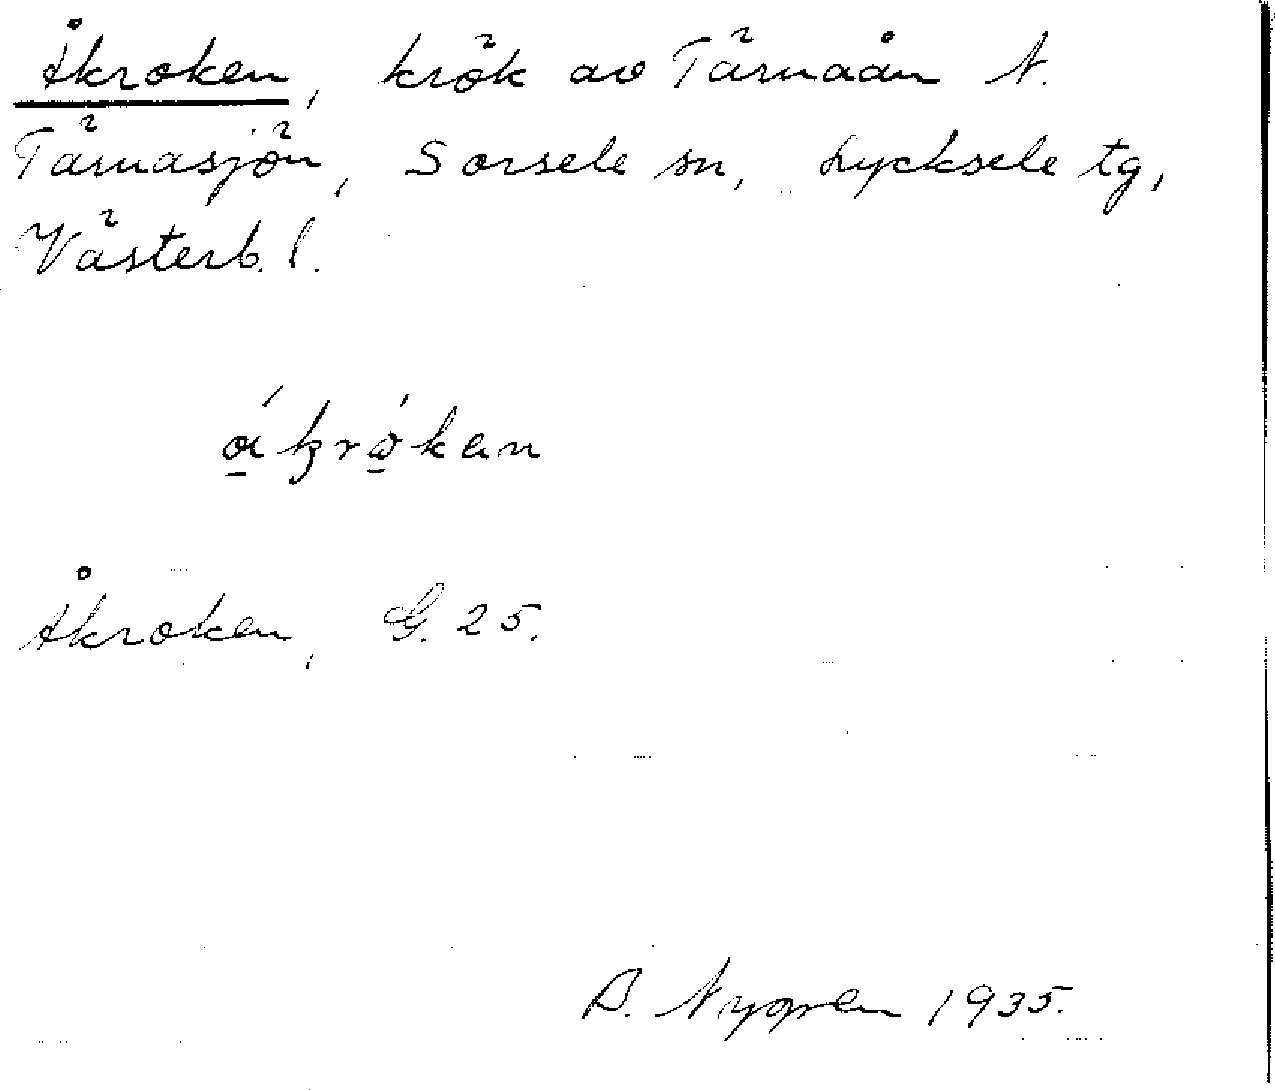 Åkroken, krök av Tärnaån N.
Tärnasjön, Sorsele sn, Lycksele tg,
Västerb. l.
Åkroken, G. 25.
Nygren 1935.